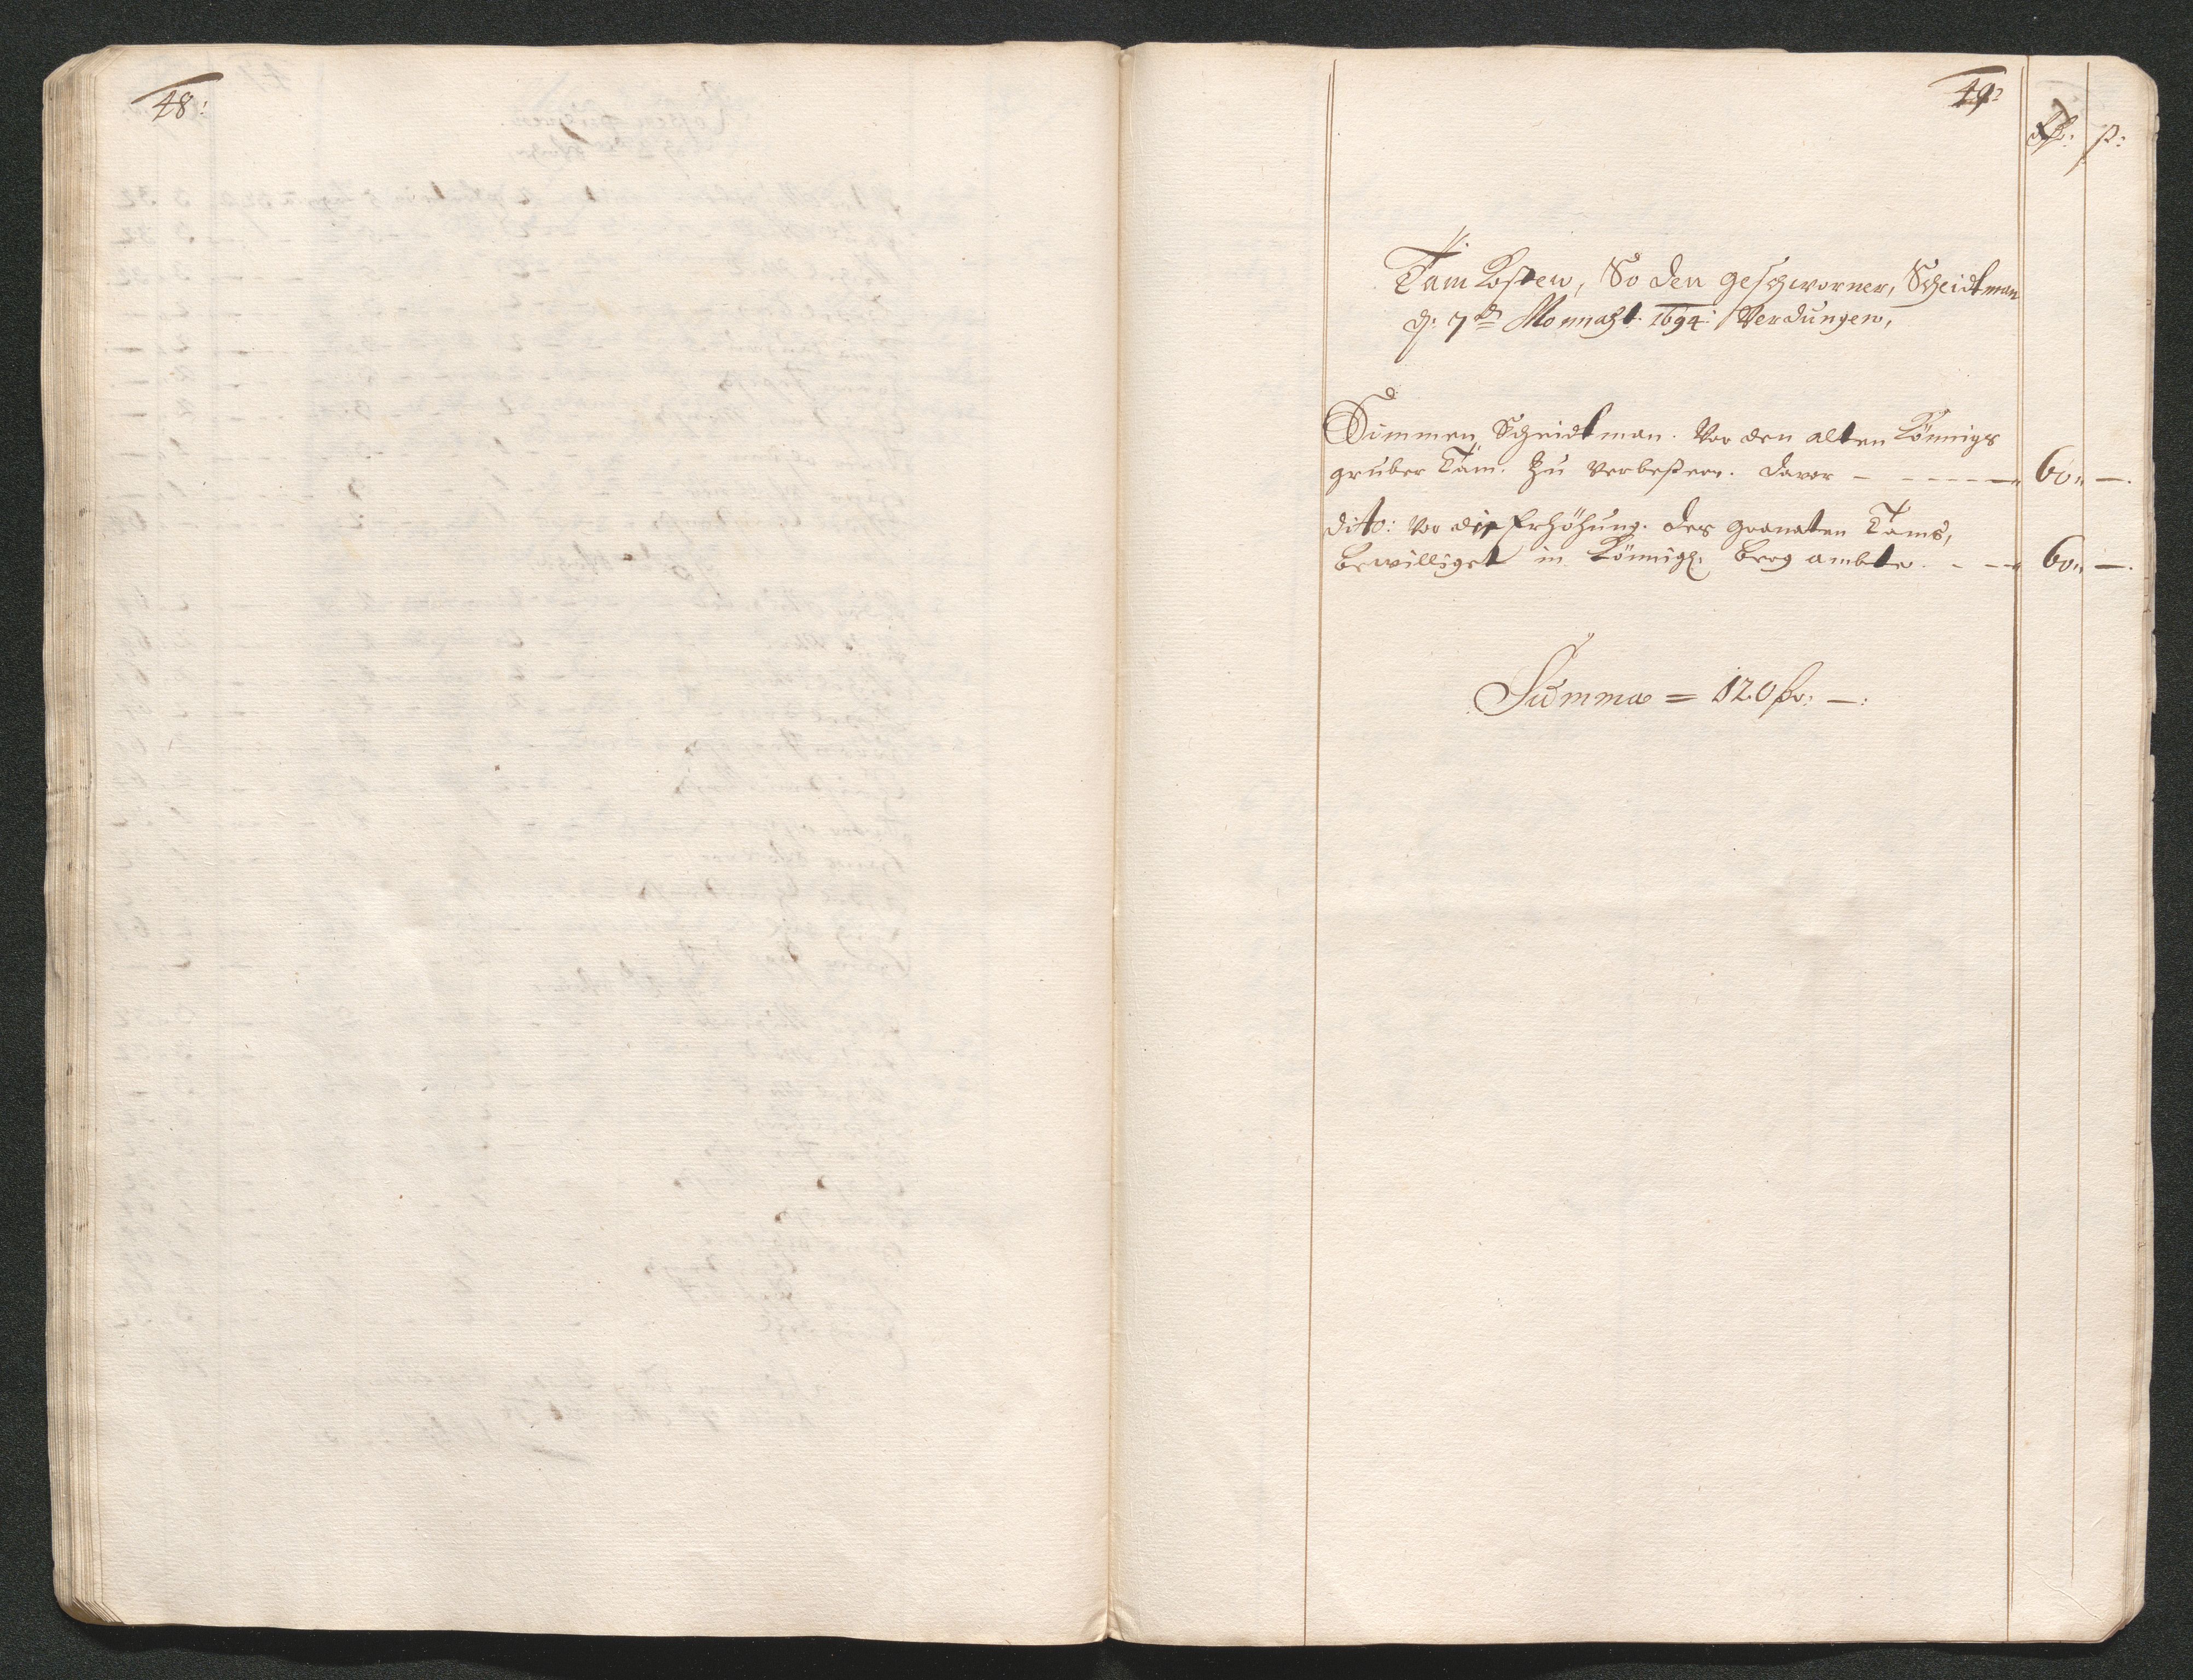 48:
49:
Rr: ß:
Tam Kosten, So den geschworner, Scheidtman
d: 7ᵈ Monnaht 1694: Verdungen,
Simmen Scheidtman. Vor den alten Könnigs
gruber Tam. zu verbeßern. davor - - - - - - 60„ —.
dito: vor die Erhöhung. des granaten Tams,
bewilliget in Könnigl: Berg ambte. - - - 60„ —.
Summa = 120 Rr: —: